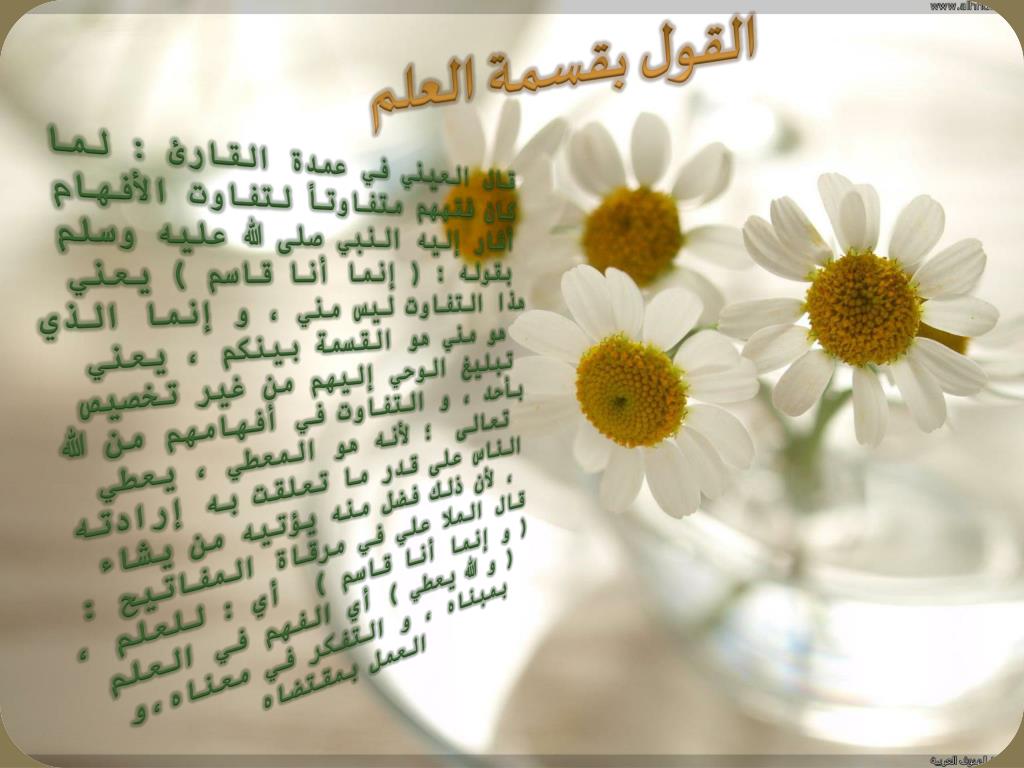 القول بقسمة العلم
قال العيني في عمدة القارئ : لما
كان فقههم متفاوتاً لتفاوت الأفهام
أشار إليه النبي صلى الله عليه وسلم
بقوله : ( إنما أنا قاسم ) يعني
هذا التفاوت ليس مني ، و إنما الذي
هو مني هو القسمة بينكم ، يعني
تبليغ الوحي إليهم من غير تخصيص
بأحد ، و التفاوت في أفهامهم من الله
تعالى ؛ لأنه هو المعطي ، يعطي
الناس على قدر ما تعلقت به إرادته
، لأن ذلك فضل منه يؤتيه من يشاء
قال الملا علي في مرقاة المفاتيح :
( و إنما أنا قاسم ) أي : للعلم ،
( و الله يعطي ) أي الفهم في العلم
بمبناه ، و التفكر في معناه ، و
العمل بمقتضاه